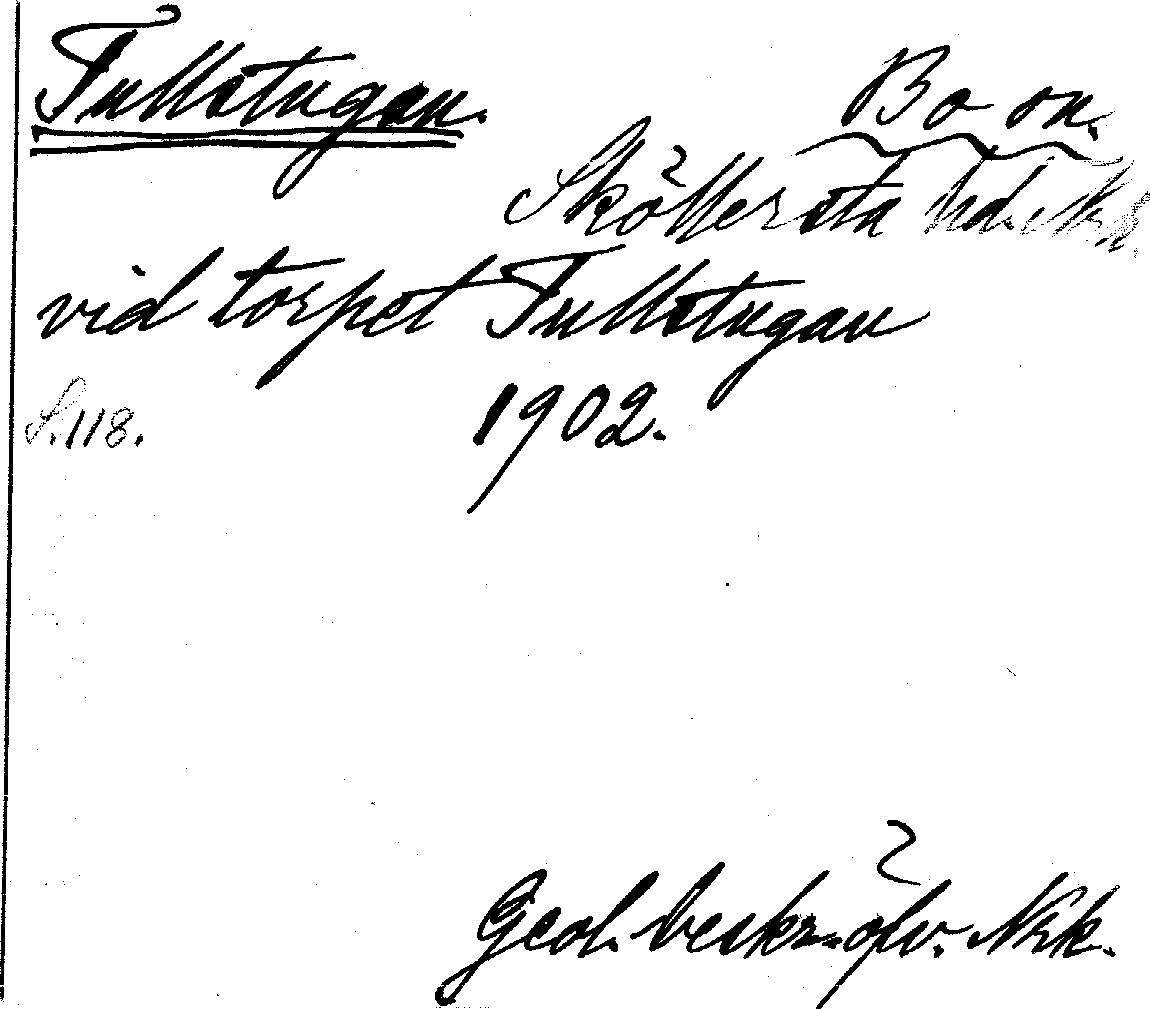 Tullstugan. Bo sn.
Sköllersta hd. Nrk.
vid torpet Tullstugan
S. 118. 1902.
Geol. beskr. öfv. Nrk.